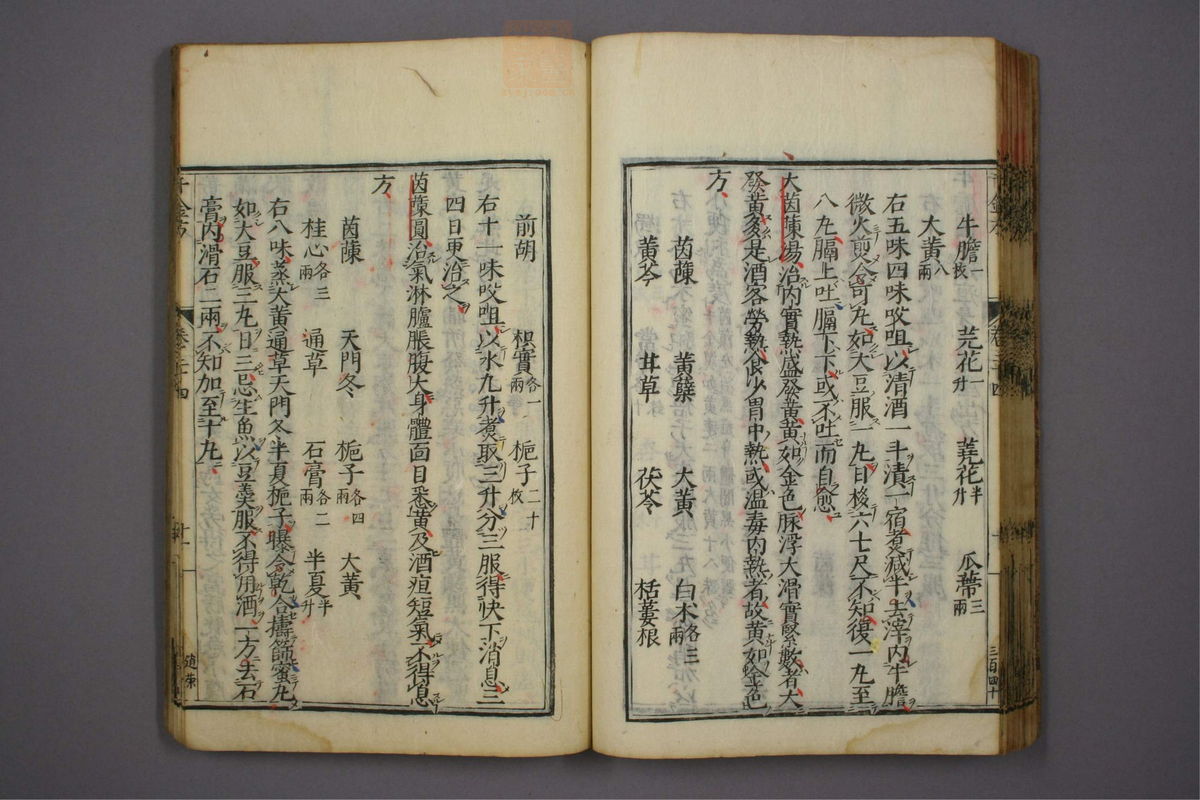 牛膽一枚 芫花一升 蕘花半升 瓜蔕三兩
大黃八兩
右五味四味㕮咀以清酒一斗漬一宿煮減半去滓內牛膽
微火煎令可丸如大豆服一丸日移六七尺不知復一丸至
八丸膈上吐膈下下或不吐而自愈
大茵蔯湯治內實熱盛發黃黃如金色脉浮大滑實緊數者夫
發黃多是酒客勞熱食少胃中熱或溫毒內熱者故黃如金色
方
茵蔯 黃蘗 大黃 白朮各三兩
黃芩 甘草 茯苓 栝蔞根
前胡 枳實各一兩 梔子二十枚
右十一味㕮咀以水九升煮取三升分三服得快下消息三
四日更治之
茵蔯圓治氣淋臚脹腹大身體面目悉黃及酒疸短氣不得息
方
茵蔯 天門冬 梔子各四兩 大黃
桂心各三兩 通草 石膏各二兩 半夏半升
右八味蒸大黃通草天門冬半夏梔子曝令乾合擣篩蜜丸
如大豆服三丸日三忌生魚以豆羹服不得用酒一方去石
膏內滑石二兩不知加至十丸
趙榮
三百四十